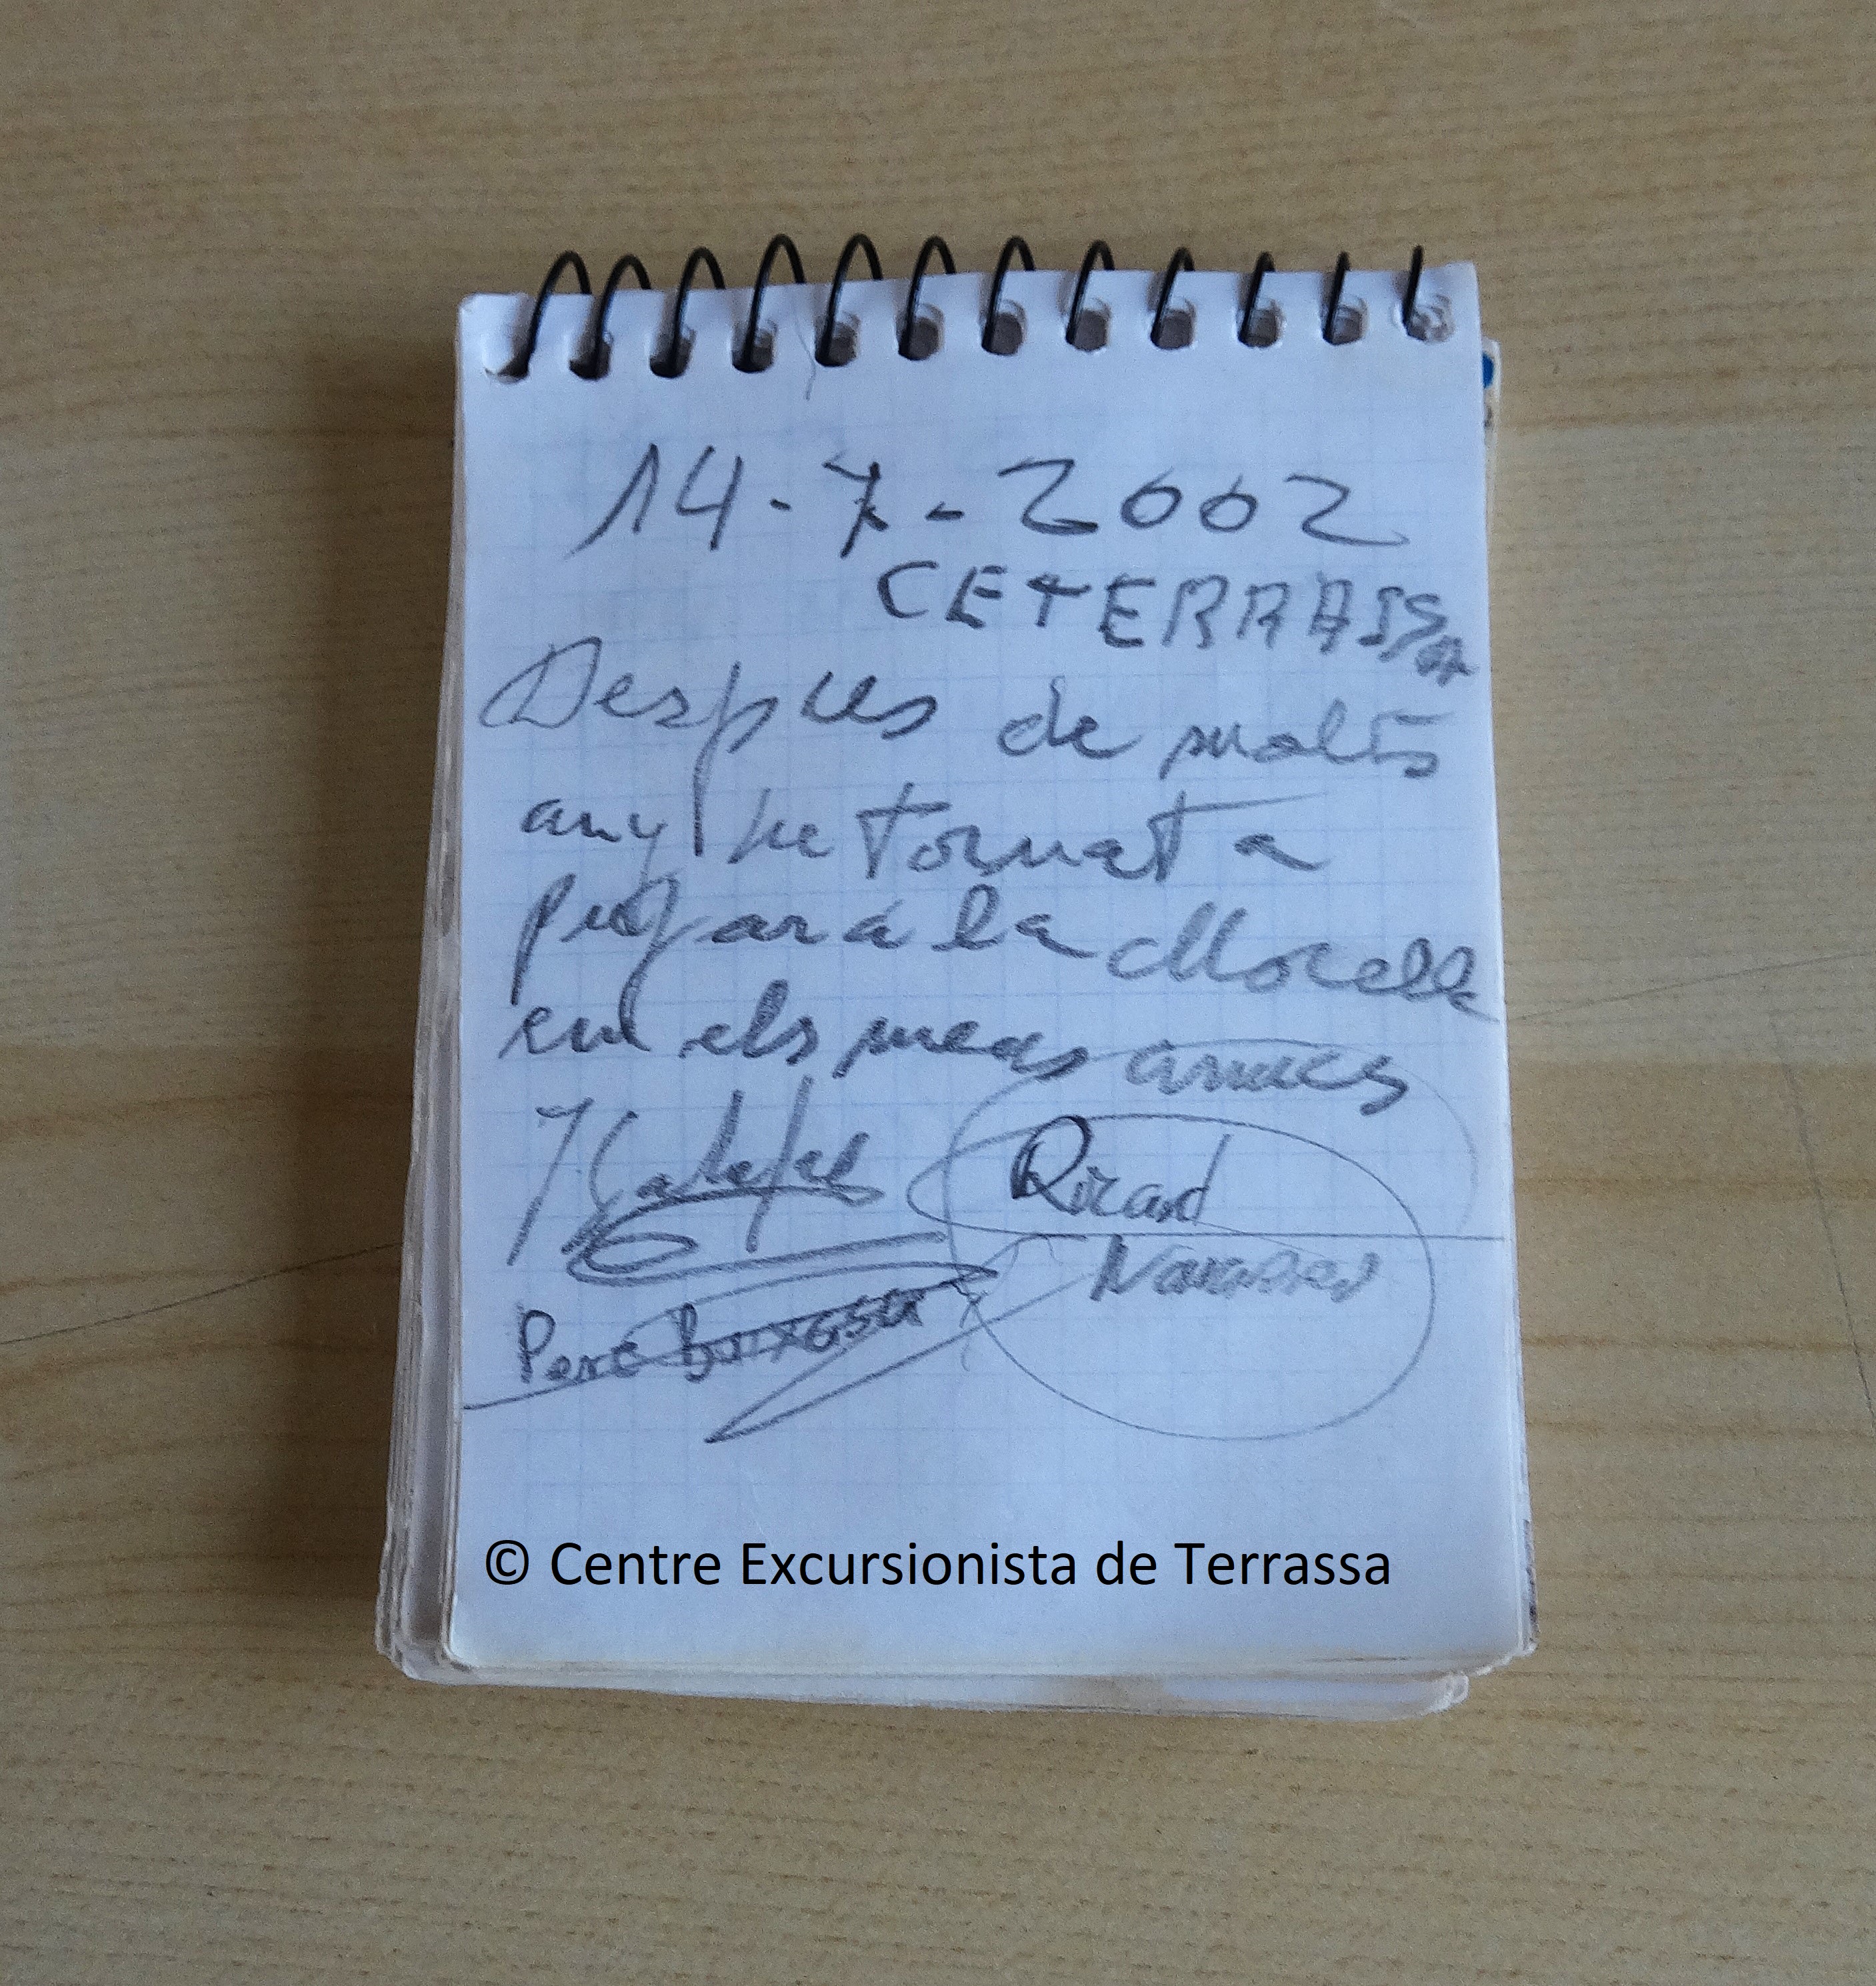 14-7-2002
CE TERRASSA
Despres de molts
any he tornat a
pujar a la Morella
em els meus amics
Ricard
Navarro
Pere
© Centre Excursionista de Terrassa